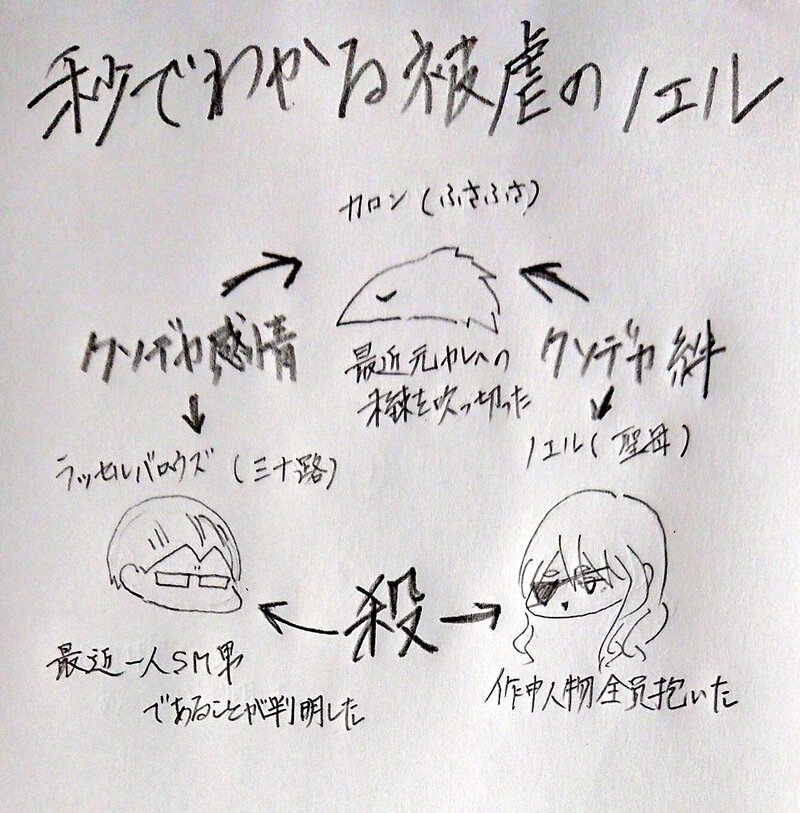 秒でわかる被虐のノエル
カロン(ふさふさ)
クソデカ感情
クソデカ絆
最近元カレへの
未練を吹っ切った
ラッセルバロウズ(三十路)
ノエル(聖母)
殺
最近一人SM男
であることが判明した
作中人物全員抱いた